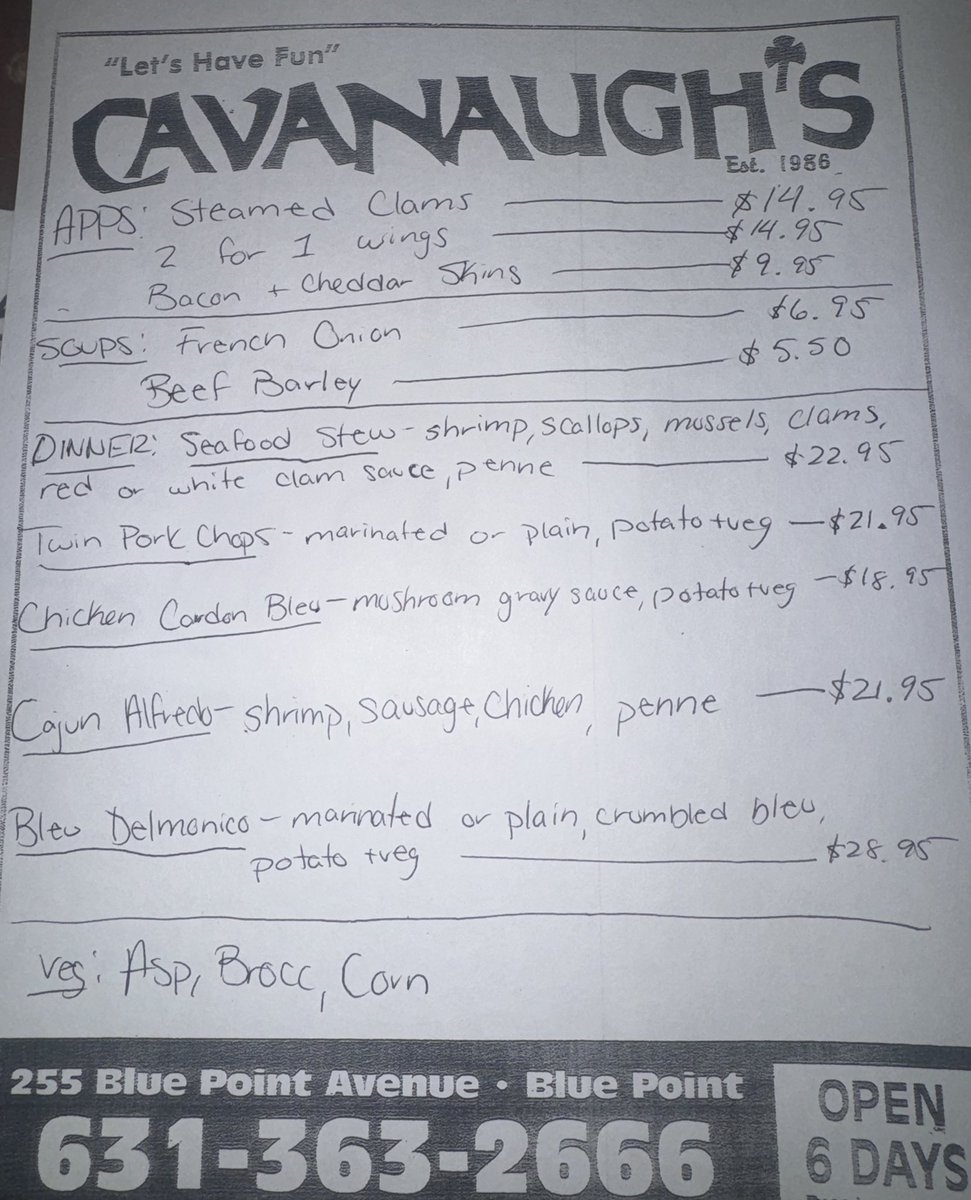 "Let's Have Fun"
CAVANAUGH'S
Est. 1986
APPS: Steamed Clams — $14.95
2 for 1 wings — $14.95
Bacon + Cheddar Skins — $9.95
SOUPS: French Onion — $6.95
Beef Barley — $5.50
DINNER: Seafood Stew - shrimp, scallops, mussels, clams,
red or white clam sauce, penne — $22.95
Twin Pork Chops - marinated or plain, potato + veg — $21.95
Chicken Cordon Bleu - mushroom gravy sauce, potato + veg - $18.95
Cajun Alfredo - shrimp, sausage, Chicken, penne — $21.95
Bleu Delmonico - marinated or plain, crumbled bleu,
potato + veg — $28.95
Veg: Asp, Brocc, Corn
255 Blue Point Avenue • Blue Point
631-363-2666
OPEN
6 DAYS